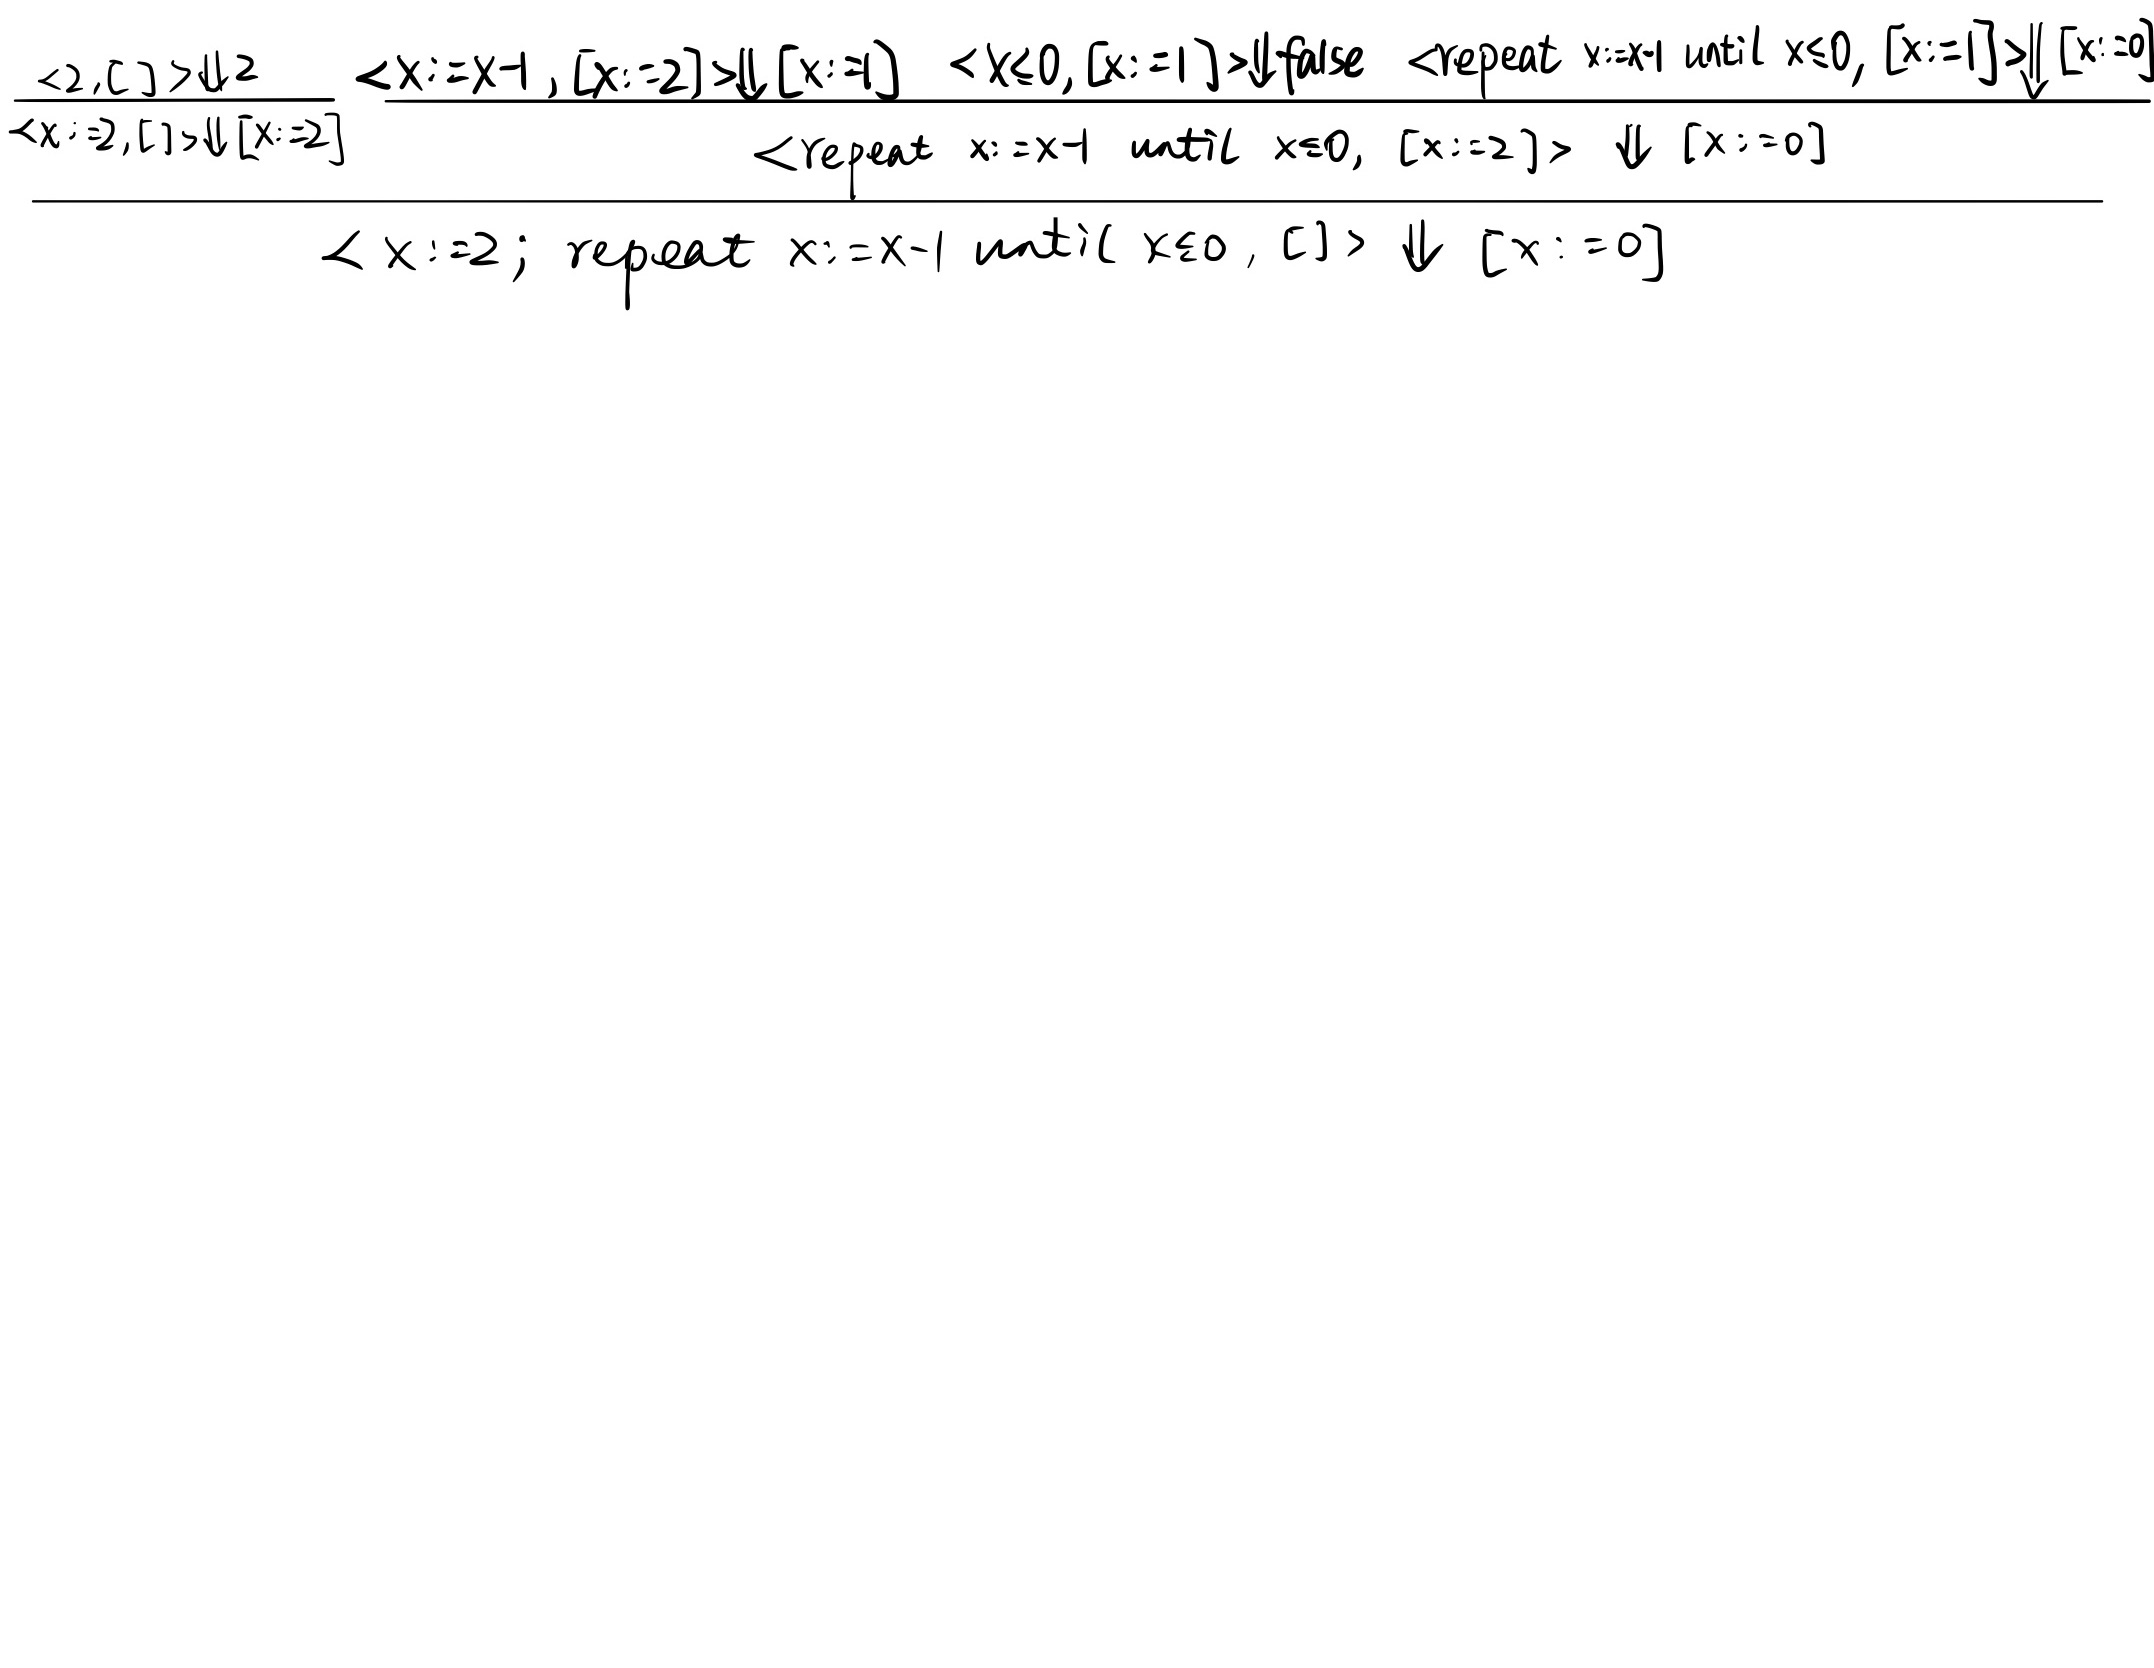 <2, []>⇓2 <x:=x-1, [x:=2]>⇓[x:=1] <x≤0, [x:=1]>⇓false <repeat x:=x-1 until x≤0, [x:=1]>⇓[x:=0]
<x:=2, []>⇓[x:=2] <repeat x:=x-1 until x≤0, [x:=2]> ⇓ [x:=0]
<x:=2; repeat x:=x-1 until x≤0, []> ⇓ [x:=0]